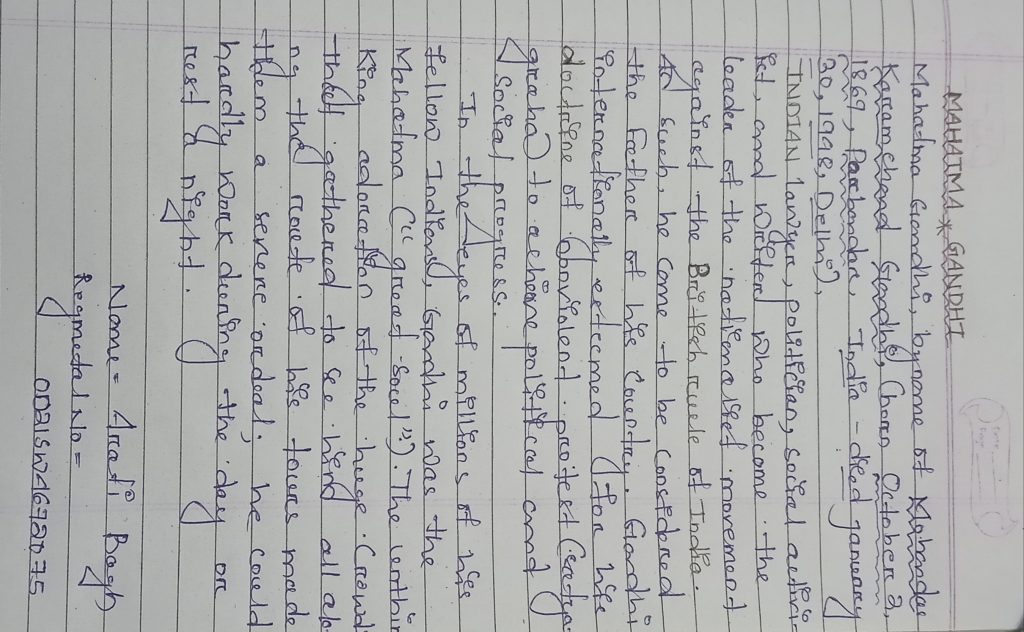 MAHATMA * GANDHI
Mahatma Gandhi, byname of Mohandas
Karamchand Gandhi, (born October 2,
1869, Porbandar, India - died january
30, 1948, Delhi),
INDIAN lawyer, politician, social activi-
ist, and writer who become the
leader of the nationalist movement
against the British ruele of India.
As such, he come to be considered
the Father of his country. Gandhi
internationally esteemed for his
doctrine of protest (satya-
graha) to achieve political and
social progress.
In the eyes of millions of his
fellow Indians, Gandhi was the
Mahatma ("great soul"). The unthin
King adoration of the huge crowd
that gathered to se him all alo
ng the route of his tours made
them a severe ordeal; he could
hardly work during the day or
rest a night.
Name = Arati Bagh
Regmetal No =